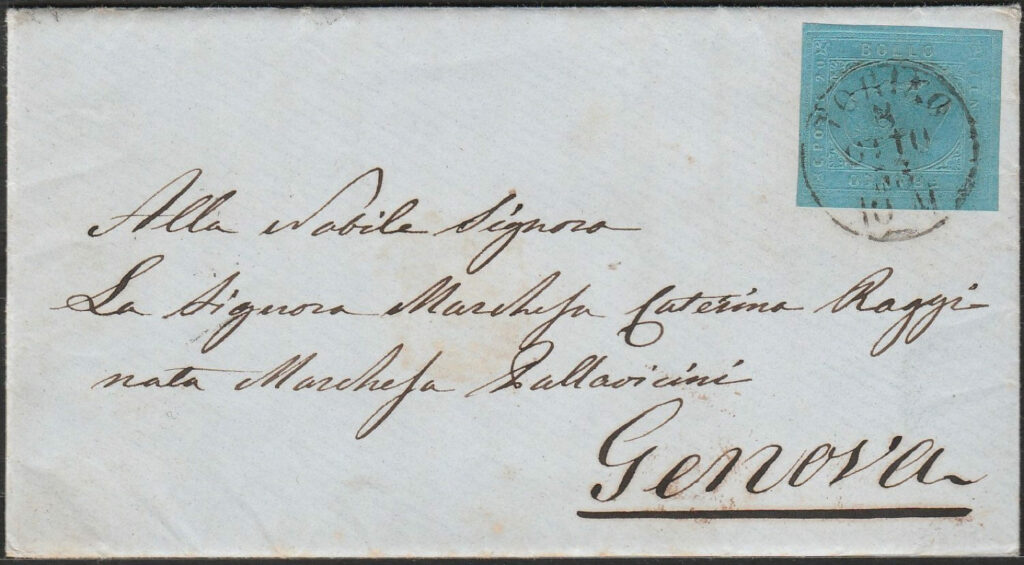 BOLLO
TORINO
OTTO
53
10 M
Alla Nobile Signora
La Signora Marchesa Caterina Raggi
nata Marchesa Pallavicini
Genova